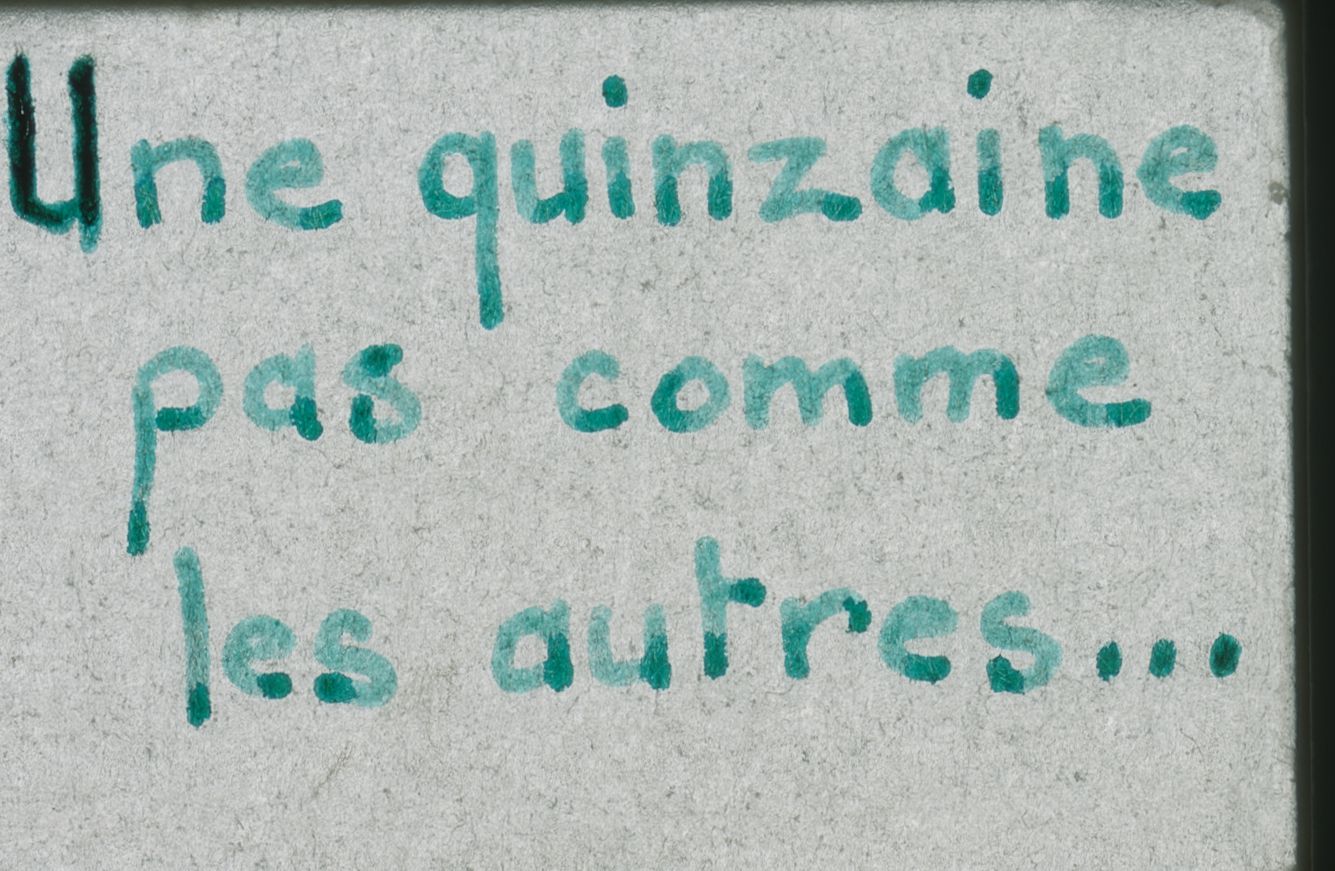 Une quinzaine
pas comme
les autres...